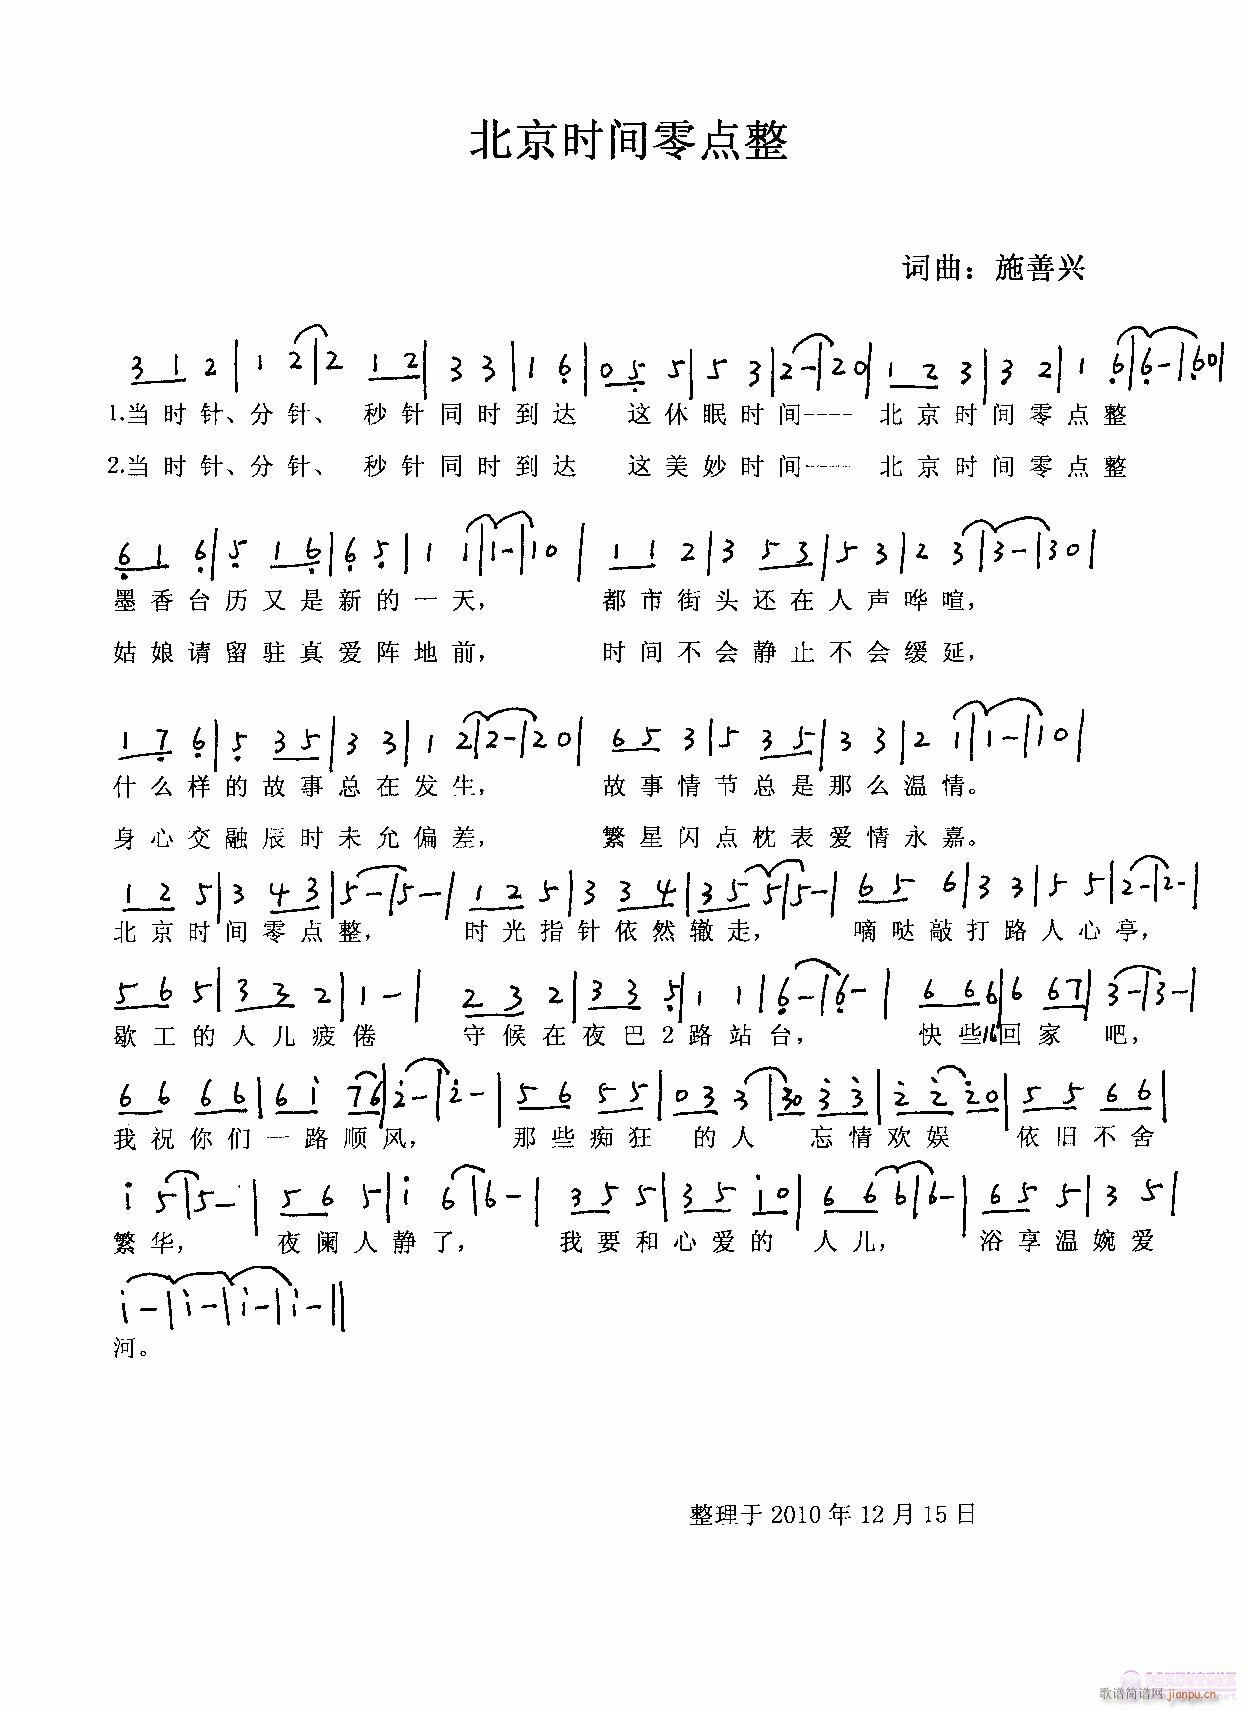 北京时间零点整
词曲：施善兴
3 1 2 | 1 2 | 2 1 2 | 3 3 | 1 6 | 0 5 5 | 5 3 | 2 - | 2 0 | 1 2 3 | 3 2 | 1 6 | 6 - | 6 0 |
1.当时针、分针、 秒针同时到达 这休眠时间---- 北京时间零点整
2.当时针、分针、 秒针同时到达 这美妙时间---- 北京时间零点整
6 1 6 | 5 1 6 | 6 5 | 1 1 | 1 - | 1 0 | 1 1 2 | 3 5 3 | 5 3 | 2 3 | 3 - | 3 0 |
墨香台历又是新的一天， 都市街头还在人声哗喧，
姑娘请留驻真爱阵地前， 时间不会静止不会缓延，
1 7 6 | 5 3 5 | 3 3 | 1 2 | 2 - | 2 0 | 6 5 3 | 5 3 5 | 3 3 | 2 1 | 1 - | 1 0 |
什么样的故事总在发生， 故事情节总是那么温情。
身心交融辰时未允偏差， 繁星闪点枕表爱情永嘉。
1 2 5 | 3 4 3 | 5 - | 5 - | 1 2 5 | 3 3 4 | 3 5 5 | 5 - | 6 5 6 | 3 3 | 5 5 | 2 - | 2 - |
北京时间零点整， 时光指针依然辙走， 嘀哒敲打路人心亭，
5 6 5 | 3 3 2 | 1 - | 2 3 2 | 3 3 5 | 1 1 | 6 - | 6 - | 6 6 6 | 6 6 7 | 3 - | 3 - |
歇工的人儿疲倦 守候在夜巴2路站台， 快些儿回家 吧，
6 6 6 6 | 6 i 7 6 | i - | i - | 5 6 5 5 | 0 3 3 | 3 0 i i | i i i 0 | 5 5 6 6 |
我祝你们一路顺风， 那些痴狂 的人 忘情欢娱 依旧不舍
i 5 | 5 - | 5 6 5 | i 6 | 6 - | 3 5 5 | 3 5 i 0 | 6 6 6 | 6 - | 6 5 5 | 3 5 |
繁华， 夜阑人静了， 我要和心爱的 人儿， 浴享温婉爱
i - | i - | i - | i - ||
河。
整理于 2010 年 12 月 15 日
歌谱简谱网 jianpu.cn